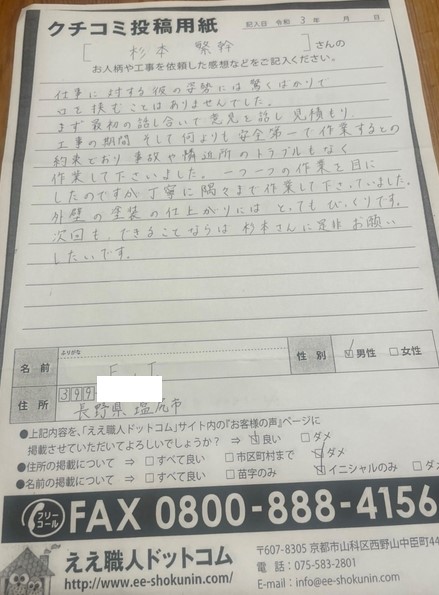 クチコミ投稿用紙
記入日 令和 3 年 月 日
[ 杉本 繁幹 ] さんの
お人柄や工事を依頼した感想などをご記入ください。
仕事に対する彼の姿勢には驚くばかりで
口を挟むことはありませんでした。
まず最初の話し合いで意見を話し見積もり、
工事の期間 そして何よりも安全第一で作業するとの
約束どおり 事故や隣近所のトラブルもなく
作業して下さいました。一つ一つの作業を目に
したのですが丁寧に隅々まで作業して下さっていました。
外壁の塗装の仕上がりには とってもびっくりです。
次回も、できることならば 杉本さんに是非お願い
したいです。
ふりがな
名前 F.I 性別 ☑男性 □女性
住所 399
長野県塩尻市
●上記内容を、「ええ職人ドットコム」サイト内の『お客様の声』ページに
掲載させていただいてよろしいでしょうか? ⇒ ☑良い □ダメ
●住所の掲載について ⇒ □すべて良い □市区町村まで ☑ダメ
●名前の掲載について ⇒ □すべて良い □苗字のみ ☑イニシャルのみ □ダメ
フリーコール FAX 0800-888-4156
ええ職人ドットコム
http://www.ee-shokunin.com/
〒607-8305 京都市山科区西野山中臣町44
電話:075-583-2801
E-mail:info@ee-shokunin.com